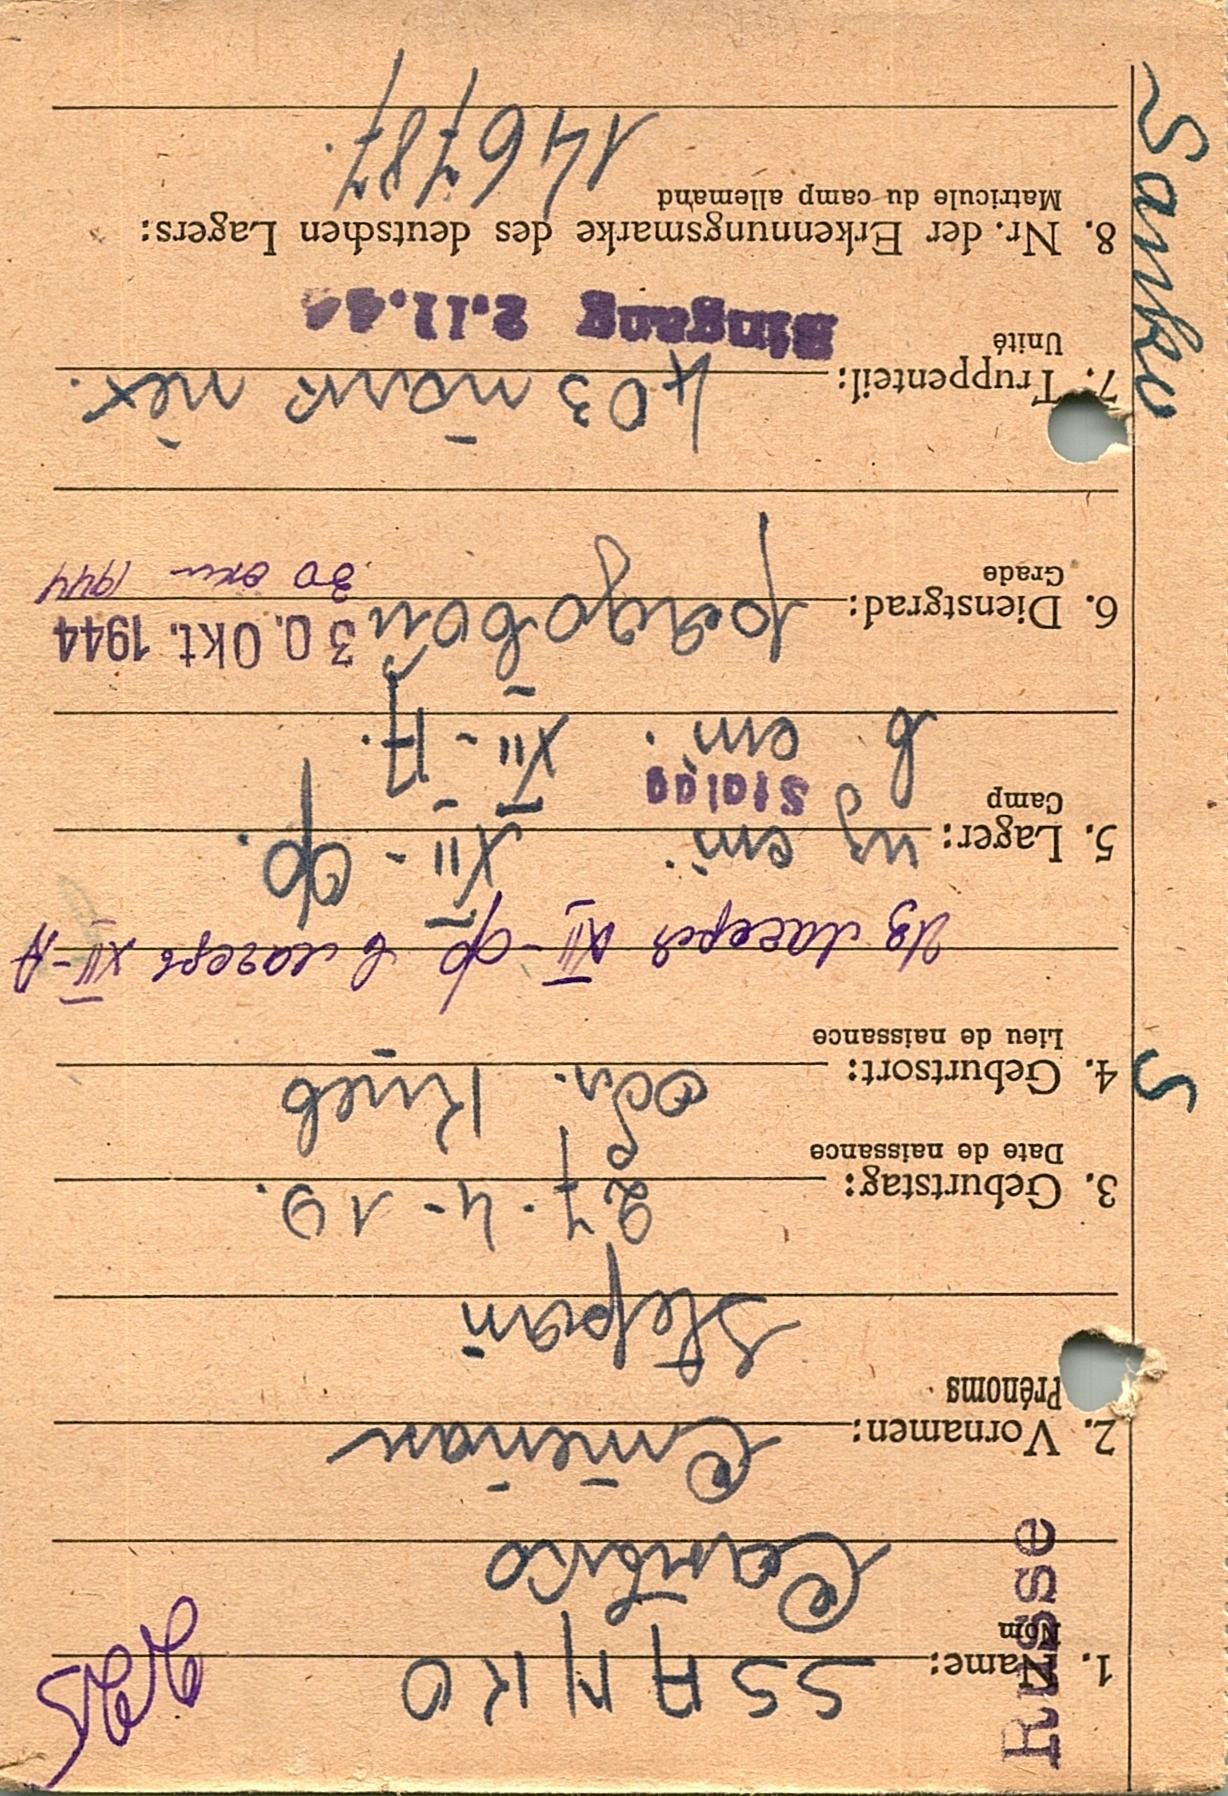 Russe
225
1. Name:
Nom
SSANKO
Санько
2. Vornamen:
Prénoms
Степан
Stepan
3. Geburtstag:
Date de naissance
27.4-19.
4. Geburtsort:
Lieu de naissance
обл. Киев
Из лагеря XII-Ф в лагерь XII-A
5. Lager:
Camp
из шт. XII-Ф.
Stalag
в шт. XII-A.
6. Dienstgrad:
Grade
рядовой
30. Okt. 1944
30 окт 1944
7. Truppenteil:
Unité
403
Eingang 2.11.44
8. Nr. der Erkennungsmarke des deutschen Lagers:
Matricule du camp allemand
146787.
S
Sanko